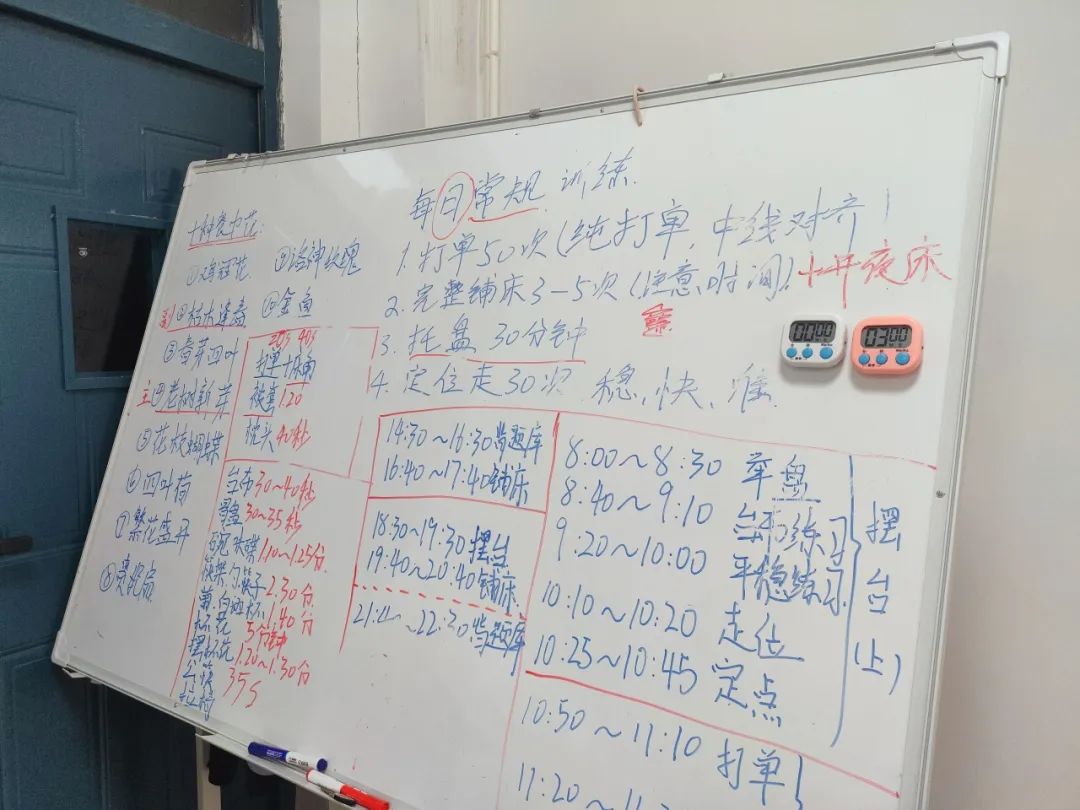 每日常规训练
1. 打单50次(纯打单,中线对齐)
2. 完整铺床3-5次(注意时间)+开夜床
3. 托盘30分钟
4. 定位走30次 稳、快、准
十种餐巾花:
①鸡冠花
②枯木逢春
③
四叶
主④老树新芽
⑤花枝蝴蝶
⑥四叶荷
⑦繁花盛开
⑧
⑨洛神玫瑰
⑩金鱼
20s 40s
被套1.20
枕头40秒
台布30~40秒
骨盘30~35秒
1.10~1.25分
筷架勺筷子2.30分
杯1.40分
杯花5分钟
摆杯花1.20~1.30分
公筷
拉椅35s
14:30~16:30背题库
16:40~17:40铺床
18:30~19:30摆台
19:40~20:40铺床
~22:30背题库
8:00~8:30 举盘
8:40~9:10 台布练习
9:20~10:00 平稳练习
10:10~10:20 走位
10:25~10:45 定点
摆台(上)
10:50~11:10 打单
11:20~11:
00:00
03:00